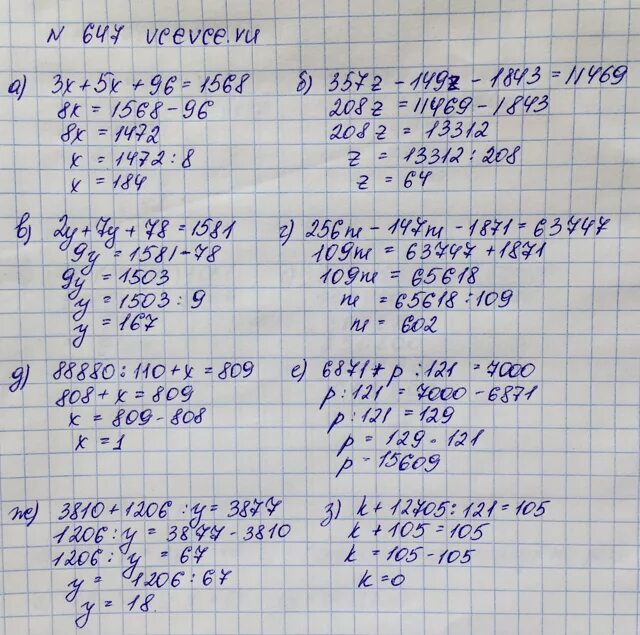 N 647 vcevce.ru
а) 3x+5x+96=1568
8x=1568-96
8x=1472
x=1472:8
x=184
б) 357z-149z-1843=11469
208z=11469-1843
208z=13312
z=13312:208
z=64
в) 2y+7y+78=1581
9y=1581-78
9y=1503
y=1503:9
y=167
г) 256m-147m-1871=63747
109m=63747+1871
109m=65618
m=65618:109
m=602
д) 88880:110+x=809
808+x=809
x=809-808
x=1
е) 6871+p:121=7000
p:121=7000-6871
p:121=129
p=129·121
p=15609
ж) 3810+1206:y=3877
1206:y=3877-3810
1206:y=67
y=1206:67
y=18.
з) k+12705:121=105
k+105=105
k=105-105
k=0